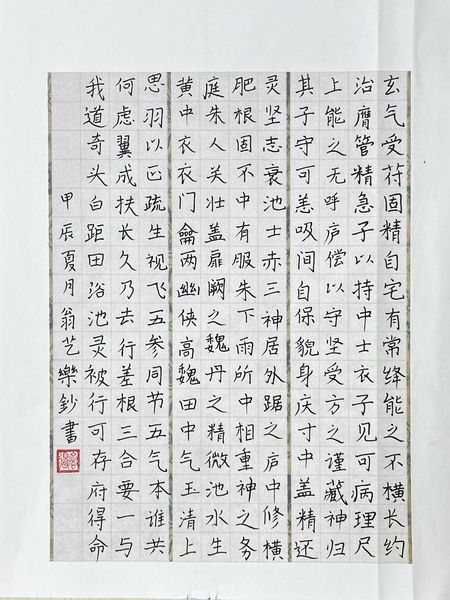 玄气受符固精自宅有常绛能之不横长约
治膺管精急子以持中士衣子见可病理尺
上能之无呼庐偿以守坚受方之谨藏神归
其子守可恙吸间自保貌身庆寸中盖精还
灵坚志衰池士赤三神居外踞之庐中修横
肥根固不中有服朱下雨所中相重神之务
庭朱人关壮盖扉阙之魏丹之精微池水生
黄中衣衣门龠两幽侠高魏田中气玉清上
思羽以正疏生视飞五参同节五气本谁共
何虑翼成扶长久乃去行差根三合要一与
我道奇头白距田浴池灵被行可存府得命
甲辰夏月翁艺樂鈔書